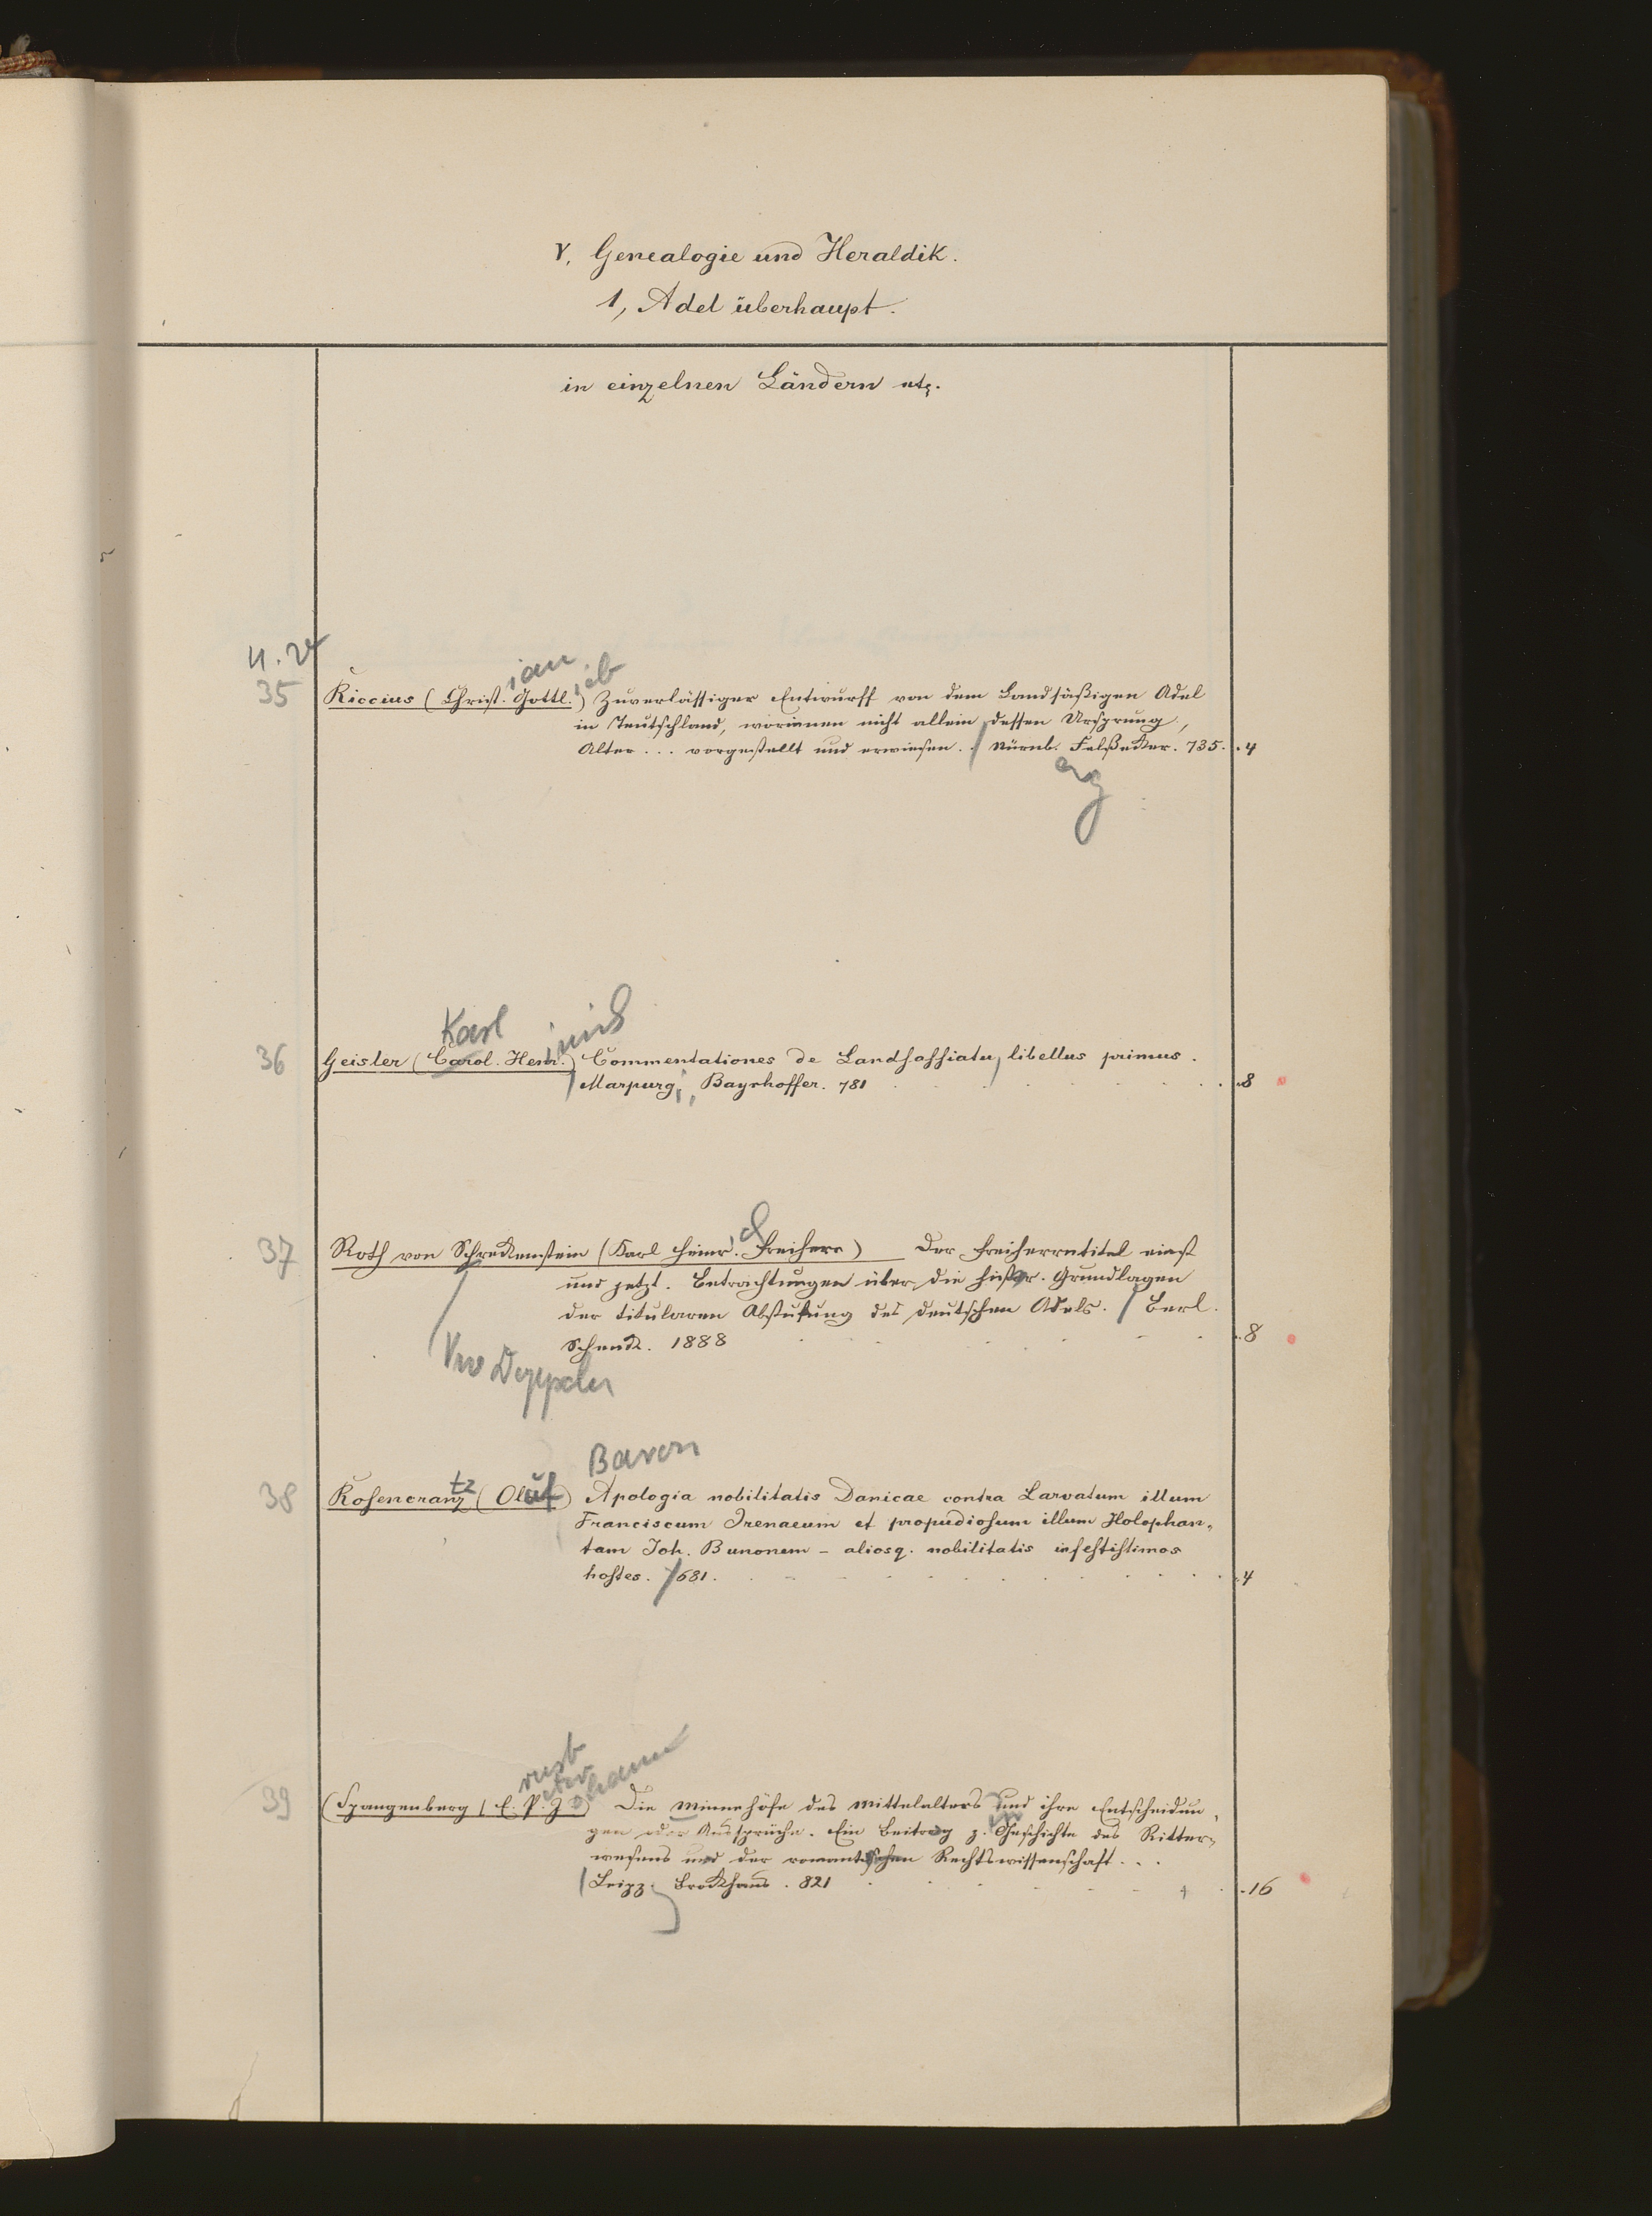 V. Genealogie und Heraldik.
1, Adel überhaupt.
in einzelnen Ländern etc.
ian ieb
35 Riccius (Christ. Gottl.) Zuverlässiger Entwurff von dem Landsäßigen Adel
in Teutschland, worinnen nicht allein dessen Ursprung,
Alter ... vorgestellt und erwiesen.. / Nürnb. Felßecker. 735. 4
erg
Karl inrich
36 Geisler (Carol. Henr.) Commentationes de Landsassiatu, libellus primus.
/ Marpurgi, Bayrhoffer. 781 8
37 Roth von Schreckenstein (Karl Heinr. Freiherr) Der Freiherrntitel einst
und jetzt. Betrachtungen über die histor. Grundlagen
der titularen Abstufung des deutschen Adels. / Berl.
Schenck. 1888 8
Baron
tz
38 Rosencranz (Oluf) Apologia nobilitatis Danicae contra Larvatum illum
Franciscum Irenaeum et propudiosum illum Holophan-
tam Joh. Bunonem - aliosq. nobilitatis infestissimos
hostes. / 681. 4
rnst
eter
ohann
39 (Spangenberg, E. P. J.) Die Minnehöfe des Mittelalters und ihre Entscheidun-
gen oder Aussprüche. Ein Beitrag z. Geschichte des Ritter-
wesens und der romantischen Rechtswissenschaft...
/ Leipz. Brockhaus. 821 16